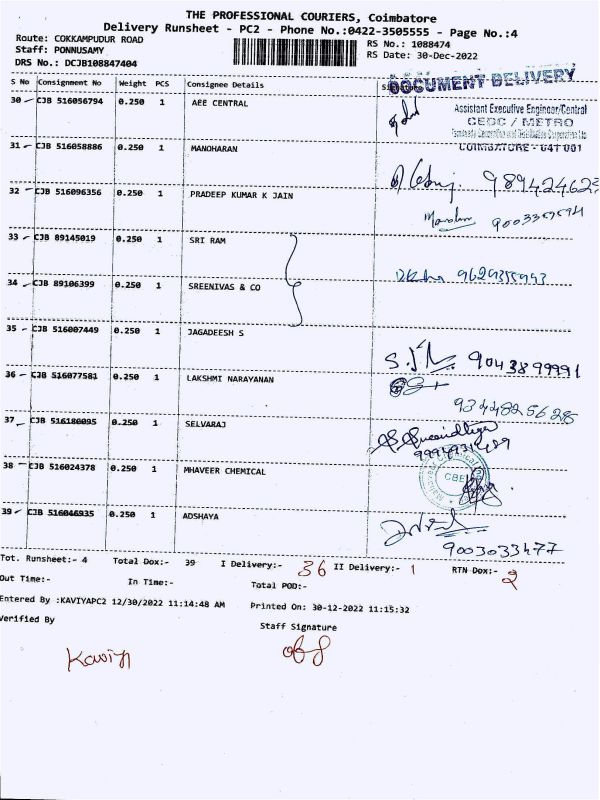 THE PROFESSIONAL COURIERS, Coimbatore
Delivery Runsheet - PC2 - Phone No.:0422-3505555 - Page No.:4
Route: COKKAMPUDUR ROAD
RS No.: 1088474
Staff: PONNUSAMY
RS Date: 30-Dec-2022
DRS No.: DCJB108847404
S No Consignment No Weight PCS Consignee Details
DOCUMENT DELIVERY
30 CJB 516056794 0.250 1 AEE CENTRAL
Assistant Executive Engineer/Central
CEDC / METRO
COIMBATORE - 641 001
31 CJB 516058886 0.250 1 MANOHARAN
32 CJB 516096356 0.250 1 PRADEEP KUMAR K JAIN
33 CJB 89145019 0.250 1 SRI RAM
34 CJB 89106399 0.250 1 SREENIVAS & CO
35 CJB 516007449 0.250 1 JAGADEESH S
9043899991
36 CJB 516077581 0.250 1 LAKSHMI NARAYANAN
37 CJB 516180095 0.250 1 SELVARAJ
38 CJB 516024378 0.250 1 MHAVEER CHEMICAL
CBE
39 CJB 516046935 0.250 1 ADSHAYA
9003033477
Tot. Runsheet:- 4 Total Dox:- 39 I Delivery:- 36 II Delivery:- 1 RTN Dox:- 2
Out Time:- In Time:- Total POD:-
Entered By :KAVIYAPC2 12/30/2022 11:14:48 AM Printed On: 30-12-2022 11:15:32
Verified By
Staff Signature
Kaviya